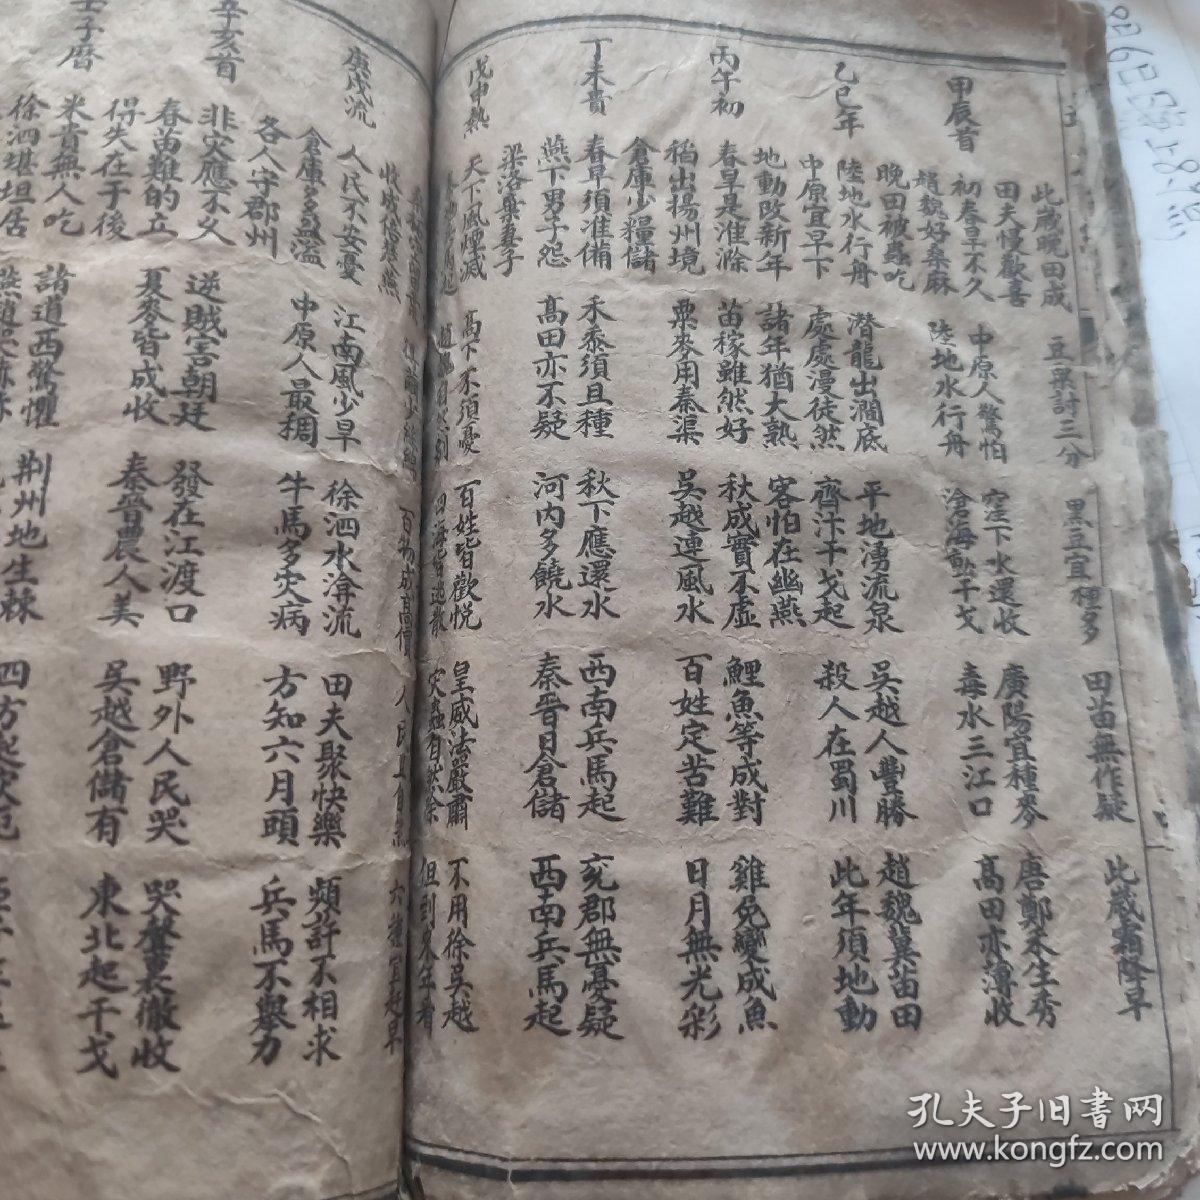 此歲晚田成 豆粟討三分 黑豆宜種多 田苗無作疑 此歲霜降早
甲辰首
田夫慢歡喜 中原人驚怕 窪下水還收 廣陽宜種麥 唐鄭禾生秀
初春旱不久 陸地水行舟 滄海動干戈 毒水三江口 高田亦薄收
趙魏好桑麻
晚田被蟲吃 潛龍出澗底 平地湧流泉 吳越人豐勝 趙魏冀苗田
乙巳年
陸地水行舟 處處漫徒然 齊汴干戈起 殺人在蜀川 此年須地動
中原宜早下 諸年猶大熟 客怕在幽燕
地動改新年
丙午初
春旱是淮滁 苗稼雖然好 秋成實不虛 鯉魚等成對 雞兔變成魚
稻出揚州境 粟麥用秦渠 吳越連風水 百姓定苦難 日月無光彩
倉庫少糧儲
丁未首
春旱須准備 禾黍須且種 秋下應還水 西南兵馬起 兗郡無憂疑
燕下男子怨 高田亦不疑 河內多饒水 秦晉日倉儲 西南兵馬起
梁洛棄妻子
戊申熱
天下風煙減 高下不須憂 百姓皆歡悅 皇威法嚴肅 不用徐吳越
庚戌流
人民不安憂 江南風少旱 徐泗水渰流 田夫聚快樂 頻許不相求
倉庫多盈溢 中原人最稠 牛馬多災病 方知六月頭 兵馬不舉力
各人守郡州
辛亥首
非災應不义 逆賊害朝廷 發在江渡口 野外人民哭 哭聲裏徹收
春苗難的立 夏麥皆成收 秦晉農人美 吳越倉儲有 東北起干戈
得失在于後
壬子曆
米貴無人吃 諸道西驚懼 荆州地生棘
徐泗堪坦居
孔夫子旧書网
www.kongfz.com